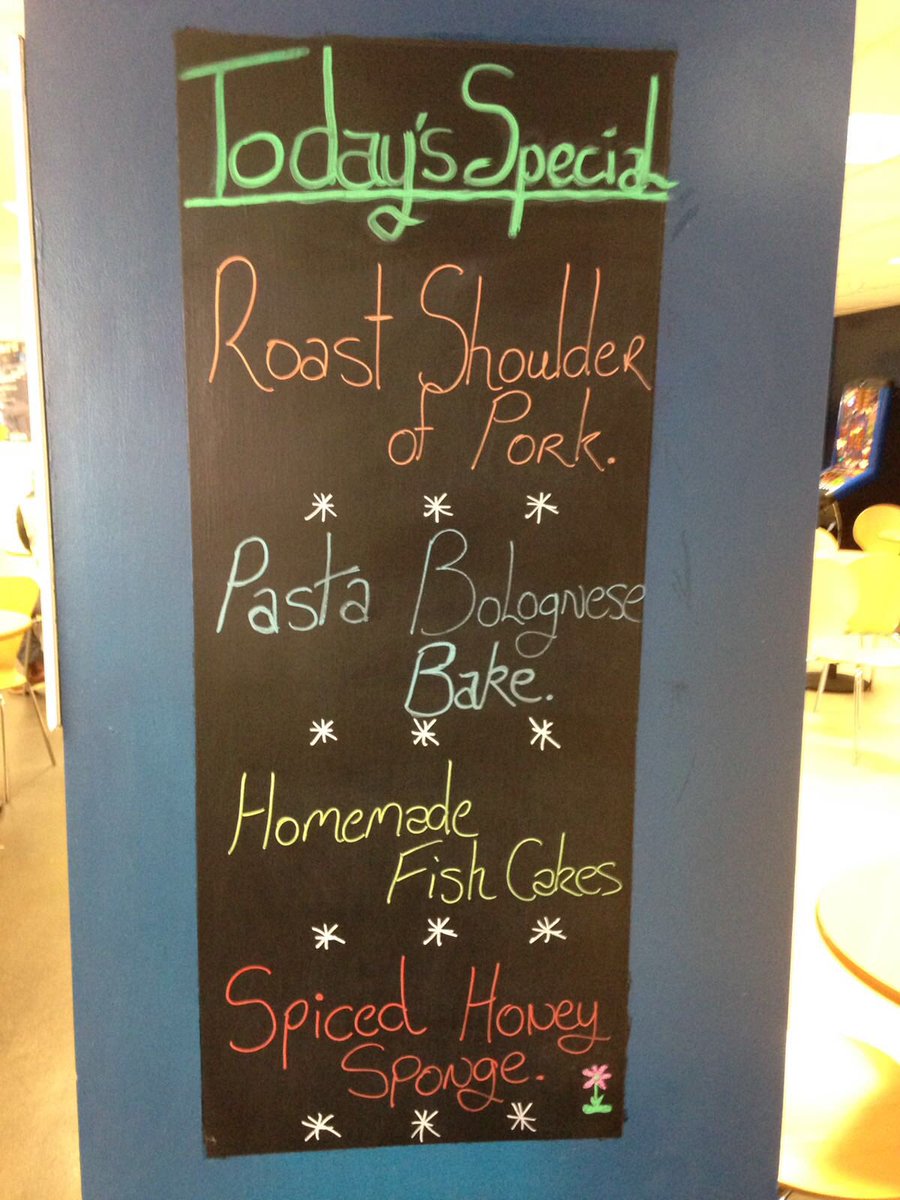 Today's Special
Roast Shoulder
of Pork.
* * *
Pasta Bolognese
Bake.
* * *
Homemade
Fish Cakes
* * *
Spiced Honey
Sponge.
* * *